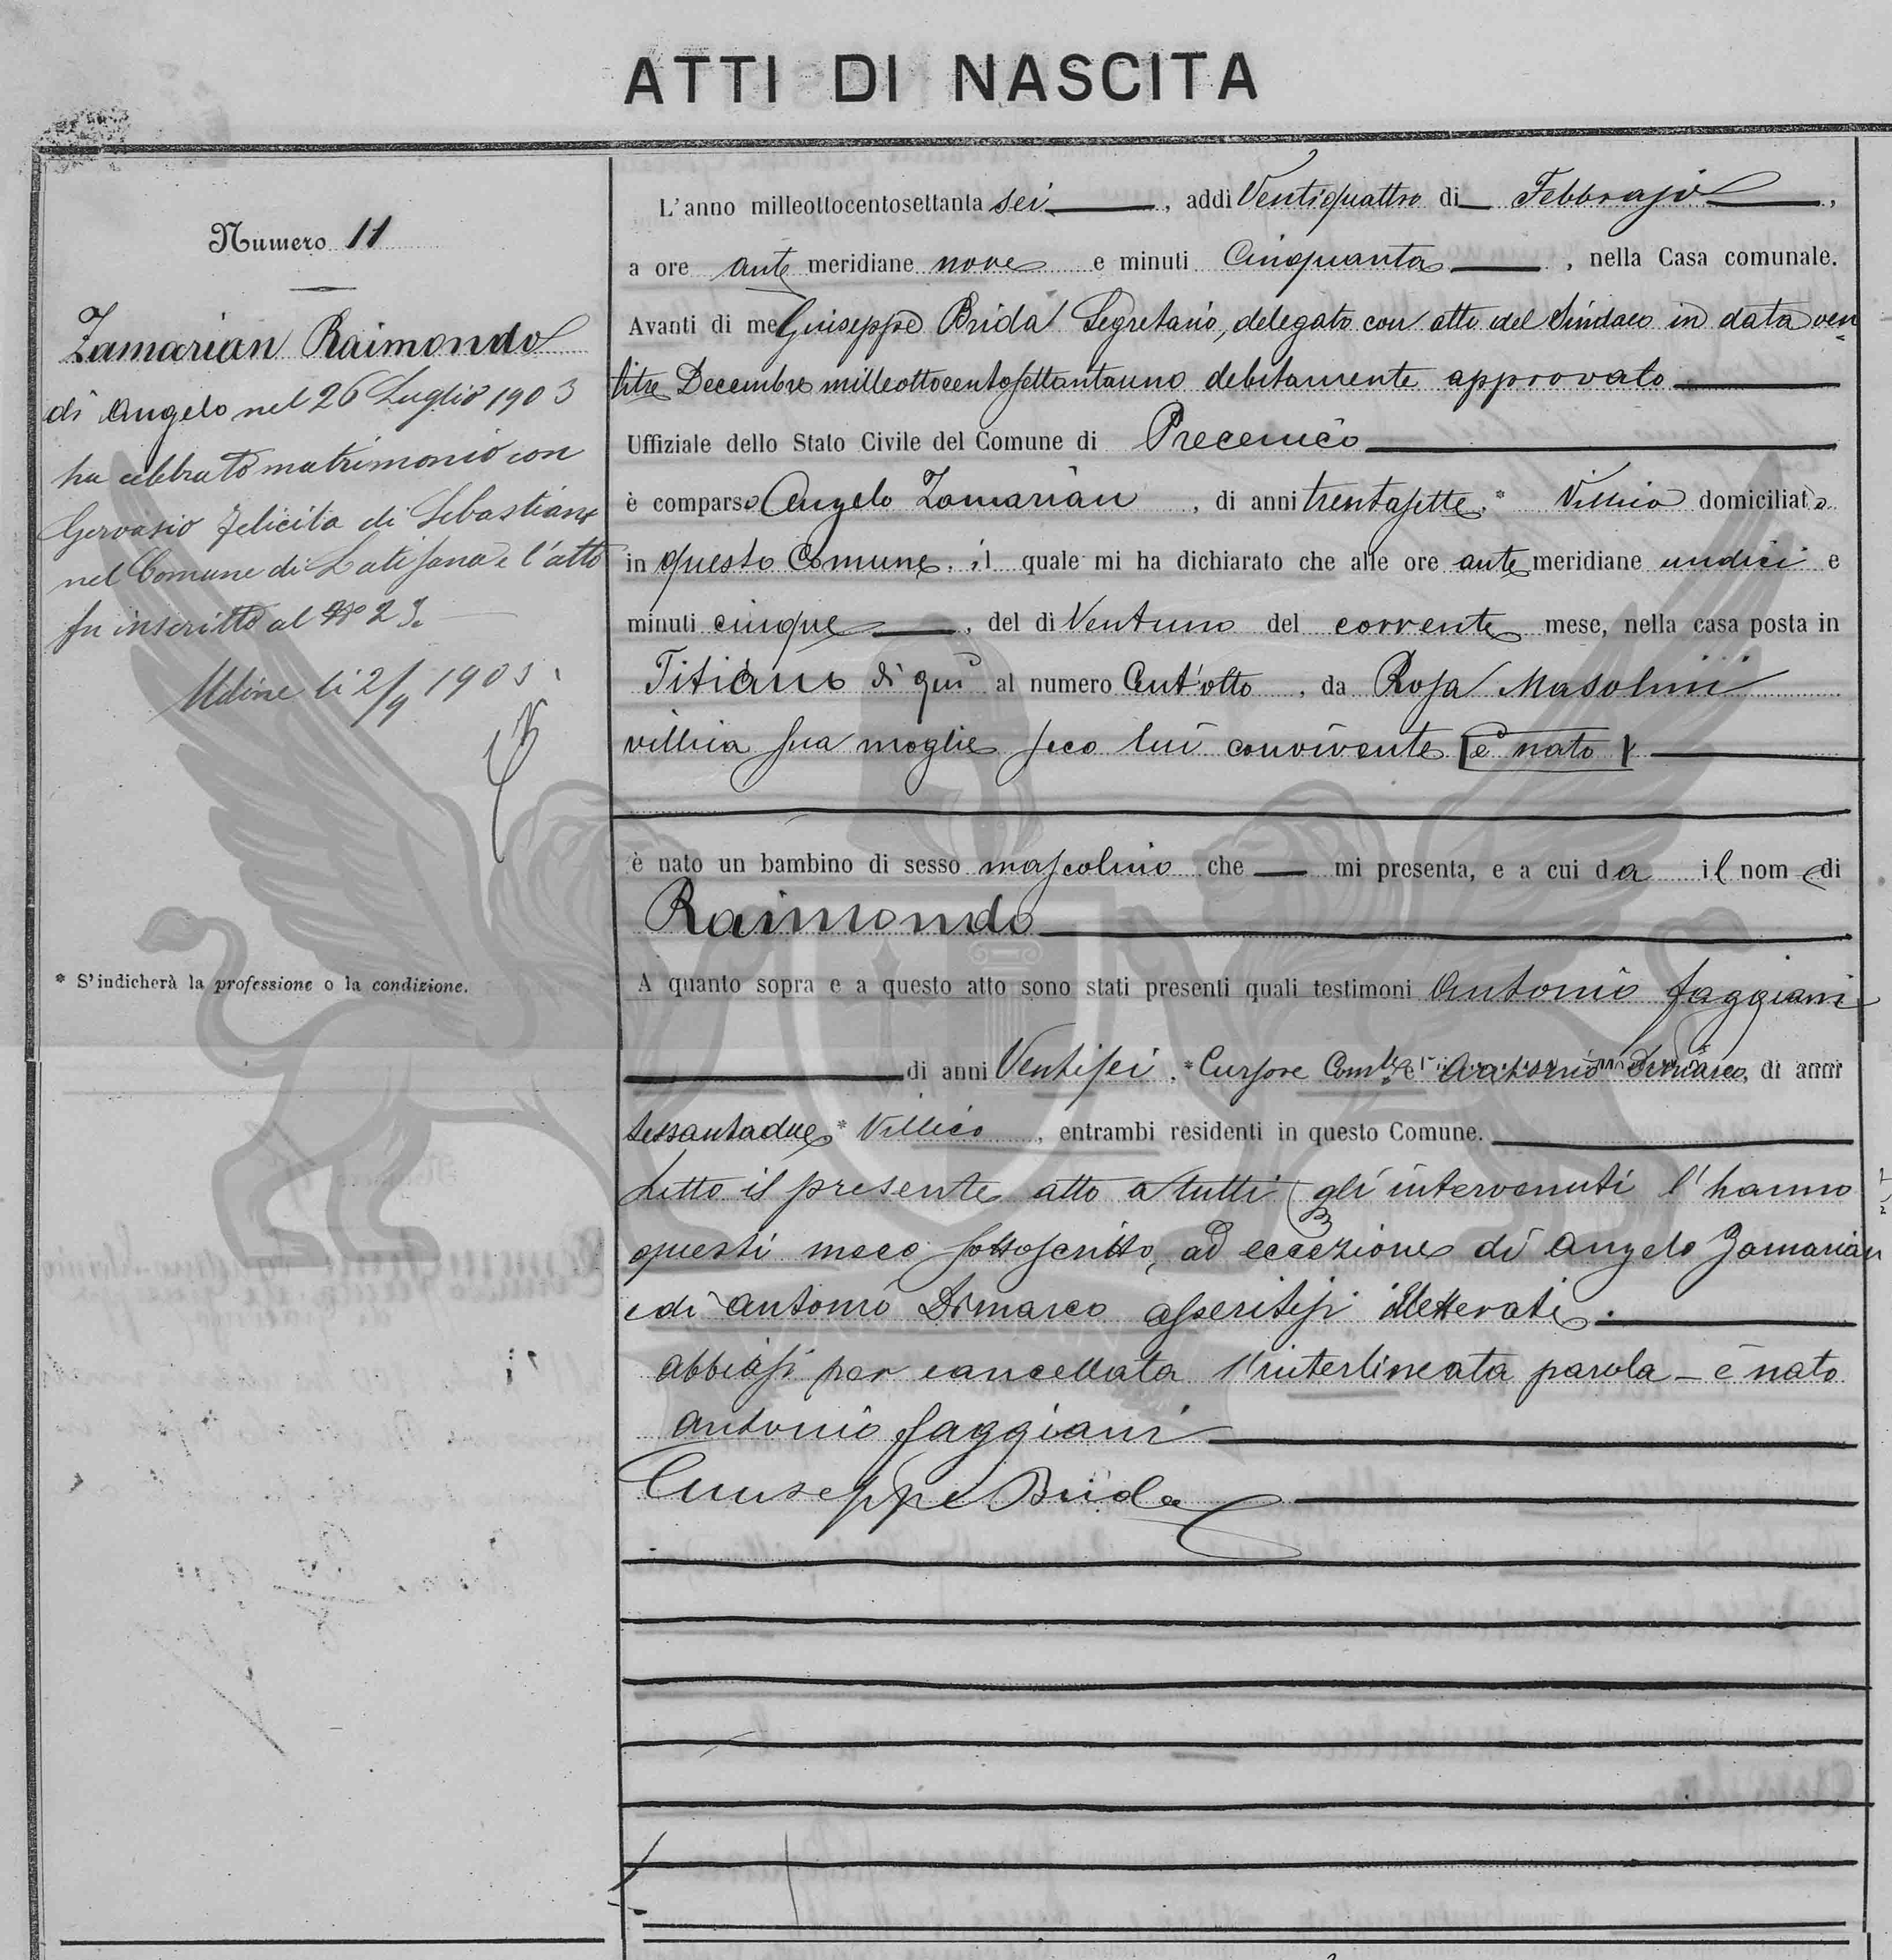 ATTI DI NASCITA
Numero 11
Zamarian Raimondo
di Angelo nel 26 Luglio 1903
ha celebrato matrimonio con
Gervasio Felicita di Sebastiano
nel Comune di Latisana e l'atto
fu inscritto al No 23.
Udine li 2/9 1903.
* S'indicherà la professione o la condizione.
L'anno milleottocentosettanta sei, addì Ventiquattro di Febbrajo,
a ore ante meridiane nove e minuti Cinquanta, nella Casa comunale.
Avanti di me Giuseppe Brida Segretario, delegato con atto del Sindaco in data ven
titre Decembre milleottocentosettantauno debitamente approvato
Uffiziale dello Stato Civile del Comune di Precenico
è comparso Angelo Zamarian, di anni trentasette,* Villico domiciliato
in questo Comune, il quale mi ha dichiarato che alle ore ante meridiane undici e
minuti cinque, del dì Ventuno del corrente mese, nella casa posta in
Titiano di qui al numero Cent'otto, da Rosa Masolini
villica sua moglie seco lui convivente è nato
è nato un bambino di sesso mascolino che mi presenta, e a cui da il nome di
Raimondo
A quanto sopra e a questo atto sono stati presenti quali testimoni Antonio Faggiani
di anni Ventisei,* Cursore Comle e Antonio Dimarco, di anni
sessantadue * Villico, entrambi residenti in questo Comune.
Letto il presente atto a tutti gli intervenuti l'hanno
questi meco sottoscritto, ad eccezione di Angelo Zamarian
e di Antonio Dimarco asseritisi illetterati.
Abbiasi per cancellata l'interlineata parola - è nato
Antonio Faggiani
Giuseppe Brida